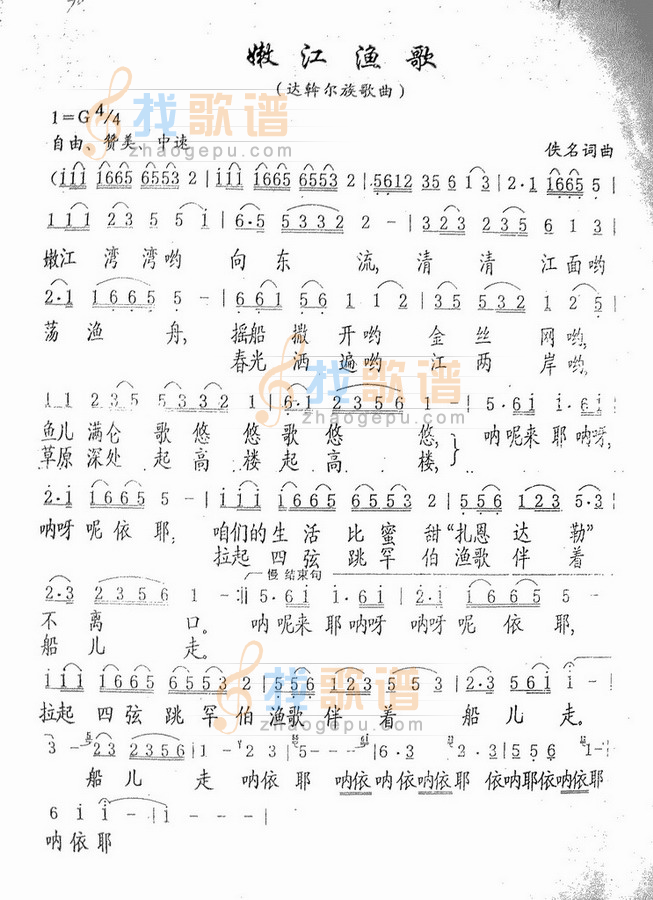 嫩江渔歌
(达斡尔族歌曲)
1=G 4/4
自由、赞美、中速
佚名词曲
找歌谱
zhaogepu.com
(i i i 1665 6553 2 | i i i 1665 6553 2 | 5612 35 6 1 3 | 2·1 1665 5
1 1 1 2 3 5 5 i | 6·5 5332 2 - | 3 2 3 5 5 3 2 3 6 1 3
嫩江 湾 湾哟 向 东 流, 清 清 江 面哟
2·1 1665 5 - | 661 56 1 1 2 | 35 5532 1 2 5
荡 渔 舟, 摇船 撒 开哟 金 丝 网哟,
春光 洒 遍哟 江 两 岸哟,
找歌谱
zhaogepu.com
1 1 2 3 5 5332 1 | 6·1 2356 1 - | 5·6i i·6i
鱼儿 满仓 歌 悠 悠 歌 悠 悠, 呐呢来 耶呐呀,
草原 深处 起 高 楼 起 高 楼,
2·1 1665 5 - | i i i i665 6553 2 | 556 123 5·3
呐呀 呢 依 耶, 咱们的 生 活 比 蜜 甜 “扎恩 达 勒”
拉起 四 弦 跳 罕 伯 渔歌 伴 着
慢 结束句
2·3 2356 1 - :|| 5·6i i·6i | 2·i i665 5 -
不 离 口。 呐呢来 耶呐呀 呐呀 呢 依 耶,
船 儿 走。
找歌谱
zhaogepu.com
i i i i665 6553 2 | 556 123 5 5 3 | 2·3 56i i -
拉起 四 弦 跳 罕 伯 渔歌 伴 着 船 儿 走。
3 - 23 2356 | 1 - 23 2 | 5 - - - | 6·3 2·3 | 2 i 556 1 -
船 儿 走 呐依 耶 呐依 呐依 呐依耶 依呐耶依呐依耶
6 i i - | i - - - |
呐依耶